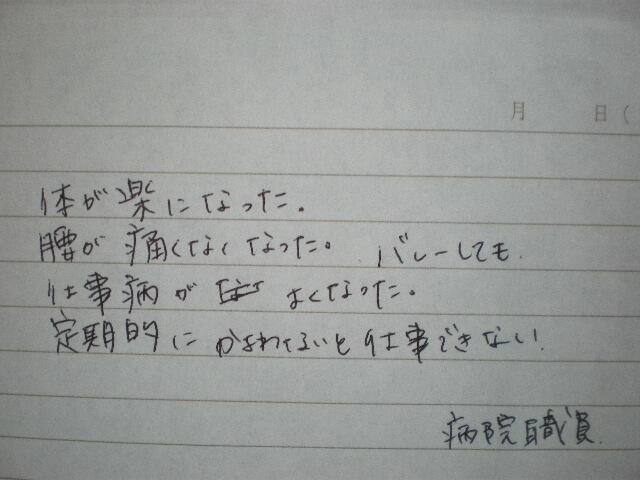 月 日(
体が楽になった。
腰が痛くなくなった。バレーしても
仕事病が よくなった。
定期的に かよわないと仕事できない!
病院職員.